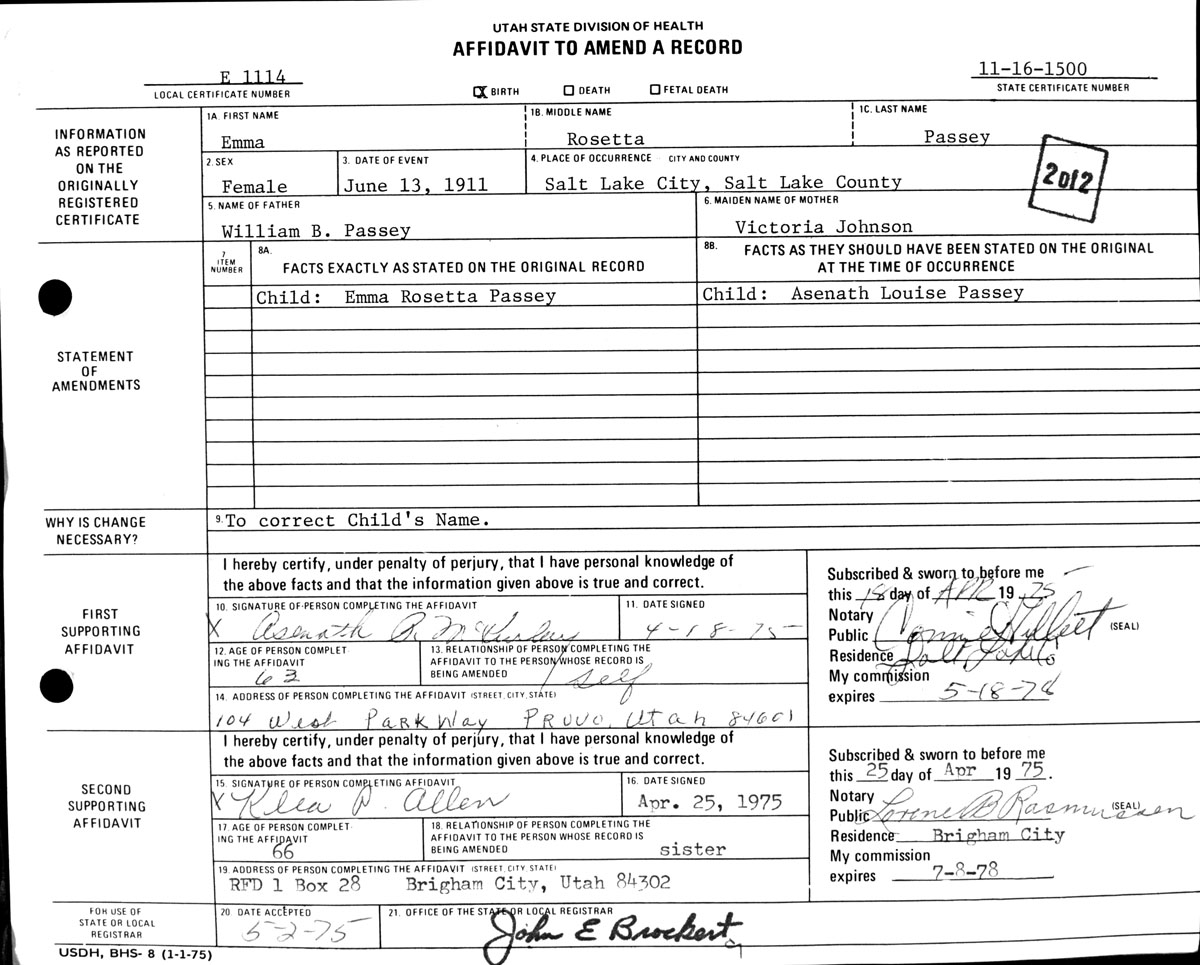 UTAH STATE DIVISION OF HEALTH
AFFIDAVIT TO AMEND A RECORD
E 1114
LOCAL CERTIFICATE NUMBER
X BIRTH DEATH FETAL DEATH
11-16-1500
STATE CERTIFICATE NUMBER
INFORMATION
AS REPORTED
ON THE
ORIGINALLY
REGISTERED
CERTIFICATE
1A. FIRST NAME 1B. MIDDLE NAME 1C. LAST NAME
Emma Rosetta Passey
2. SEX 3. DATE OF EVENT 4. PLACE OF OCCURRENCE CITY AND COUNTY
Female June 13, 1911 Salt Lake City, Salt Lake County
2 of 2
5. NAME OF FATHER 6. MAIDEN NAME OF MOTHER
William B. Passey Victoria Johnson
STATEMENT
OF
AMENDMENTS
7
ITEM
NUMBER
8A.
FACTS EXACTLY AS STATED ON THE ORIGINAL RECORD
8B. FACTS AS THEY SHOULD HAVE BEEN STATED ON THE ORIGINAL
AT THE TIME OF OCCURRENCE
Child: Emma Rosetta Passey Child: Asenath Louise Passey
WHY IS CHANGE
NECESSARY?
9. To correct Child's Name.
FIRST
SUPPORTING
AFFIDAVIT
I hereby certify, under penalty of perjury, that I have personal knowledge of
the above facts and that the information given above is true and correct.
10. SIGNATURE OF PERSON COMPLETING THE AFFIDAVIT 11. DATE SIGNED
X Asenath P. 4-18-75
12. AGE OF PERSON COMPLET
ING THE AFFIDAVIT
63
13. RELATIONSHIP OF PERSON COMPLETING THE
AFFIDAVIT TO THE PERSON WHOSE RECORD IS
BEING AMENDED self
14. ADDRESS OF PERSON COMPLETING THE AFFIDAVIT (STREET, CITY, STATE)
104 West Parkway Provo, Utah 84601
Subscribed & sworn to before me
this 18 day of APR 19 75
Notary
Public Connie (SEAL)
Residence Salt Lake
My commission
expires 5-18-78
SECOND
SUPPORTING
AFFIDAVIT
I hereby certify, under penalty of perjury, that I have personal knowledge of
the above facts and that the information given above is true and correct.
15. SIGNATURE OF PERSON COMPLETING AFFIDAVIT 16. DATE SIGNED
X Klea P. Allen Apr. 25, 1975
17. AGE OF PERSON COMPLET
ING THE AFFIDAVIT
66
18. RELATIONSHIP OF PERSON COMPLETING THE
AFFIDAVIT TO THE PERSON WHOSE RECORD IS
BEING AMENDED sister
19. ADDRESS OF PERSON COMPLETING THE AFFIDAVIT (STREET, CITY, STATE)
RFD 1 Box 28 Brigham City, Utah 84302
Subscribed & sworn to before me
this 25 day of Apr 19 75.
Notary
Public Lorene B Rasmussen (SEAL)
Residence Brigham City
My commission
expires 7-8-78
FOR USE OF
STATE OR LOCAL
REGISTRAR
20. DATE ACCEPTED 21. OFFICE OF THE STATE OR LOCAL REGISTRAR
5-2-75 John E Brockert
USDH, BHS- 8 (1-1-75)